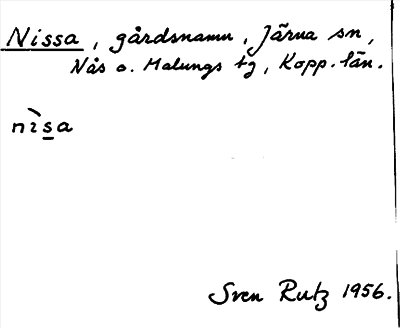 Nissa, gårdsnamn, Järna sn,
Nås o. Malungs tg, Kopp. län.
nìsa
Sven Rutz 1956.